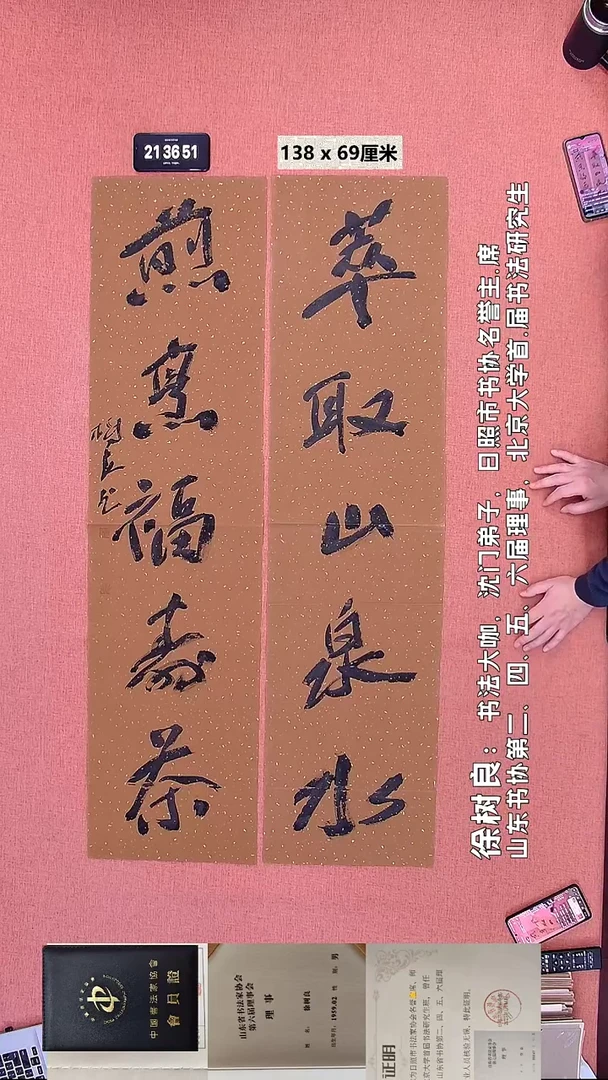 21 36 51
138 x 69厘米
萃取山泉水
煎烹福寿茶
树良
徐树良：书法大咖，沈门弟子，日照市书协名誉主.席
山东书协第二、四、五、六届理事、北京大学首.届书法研究生
中国书法家协会
會員證
山东省书法家协会
第六届理事会
理 事
徐树良
1959.02
男
证明